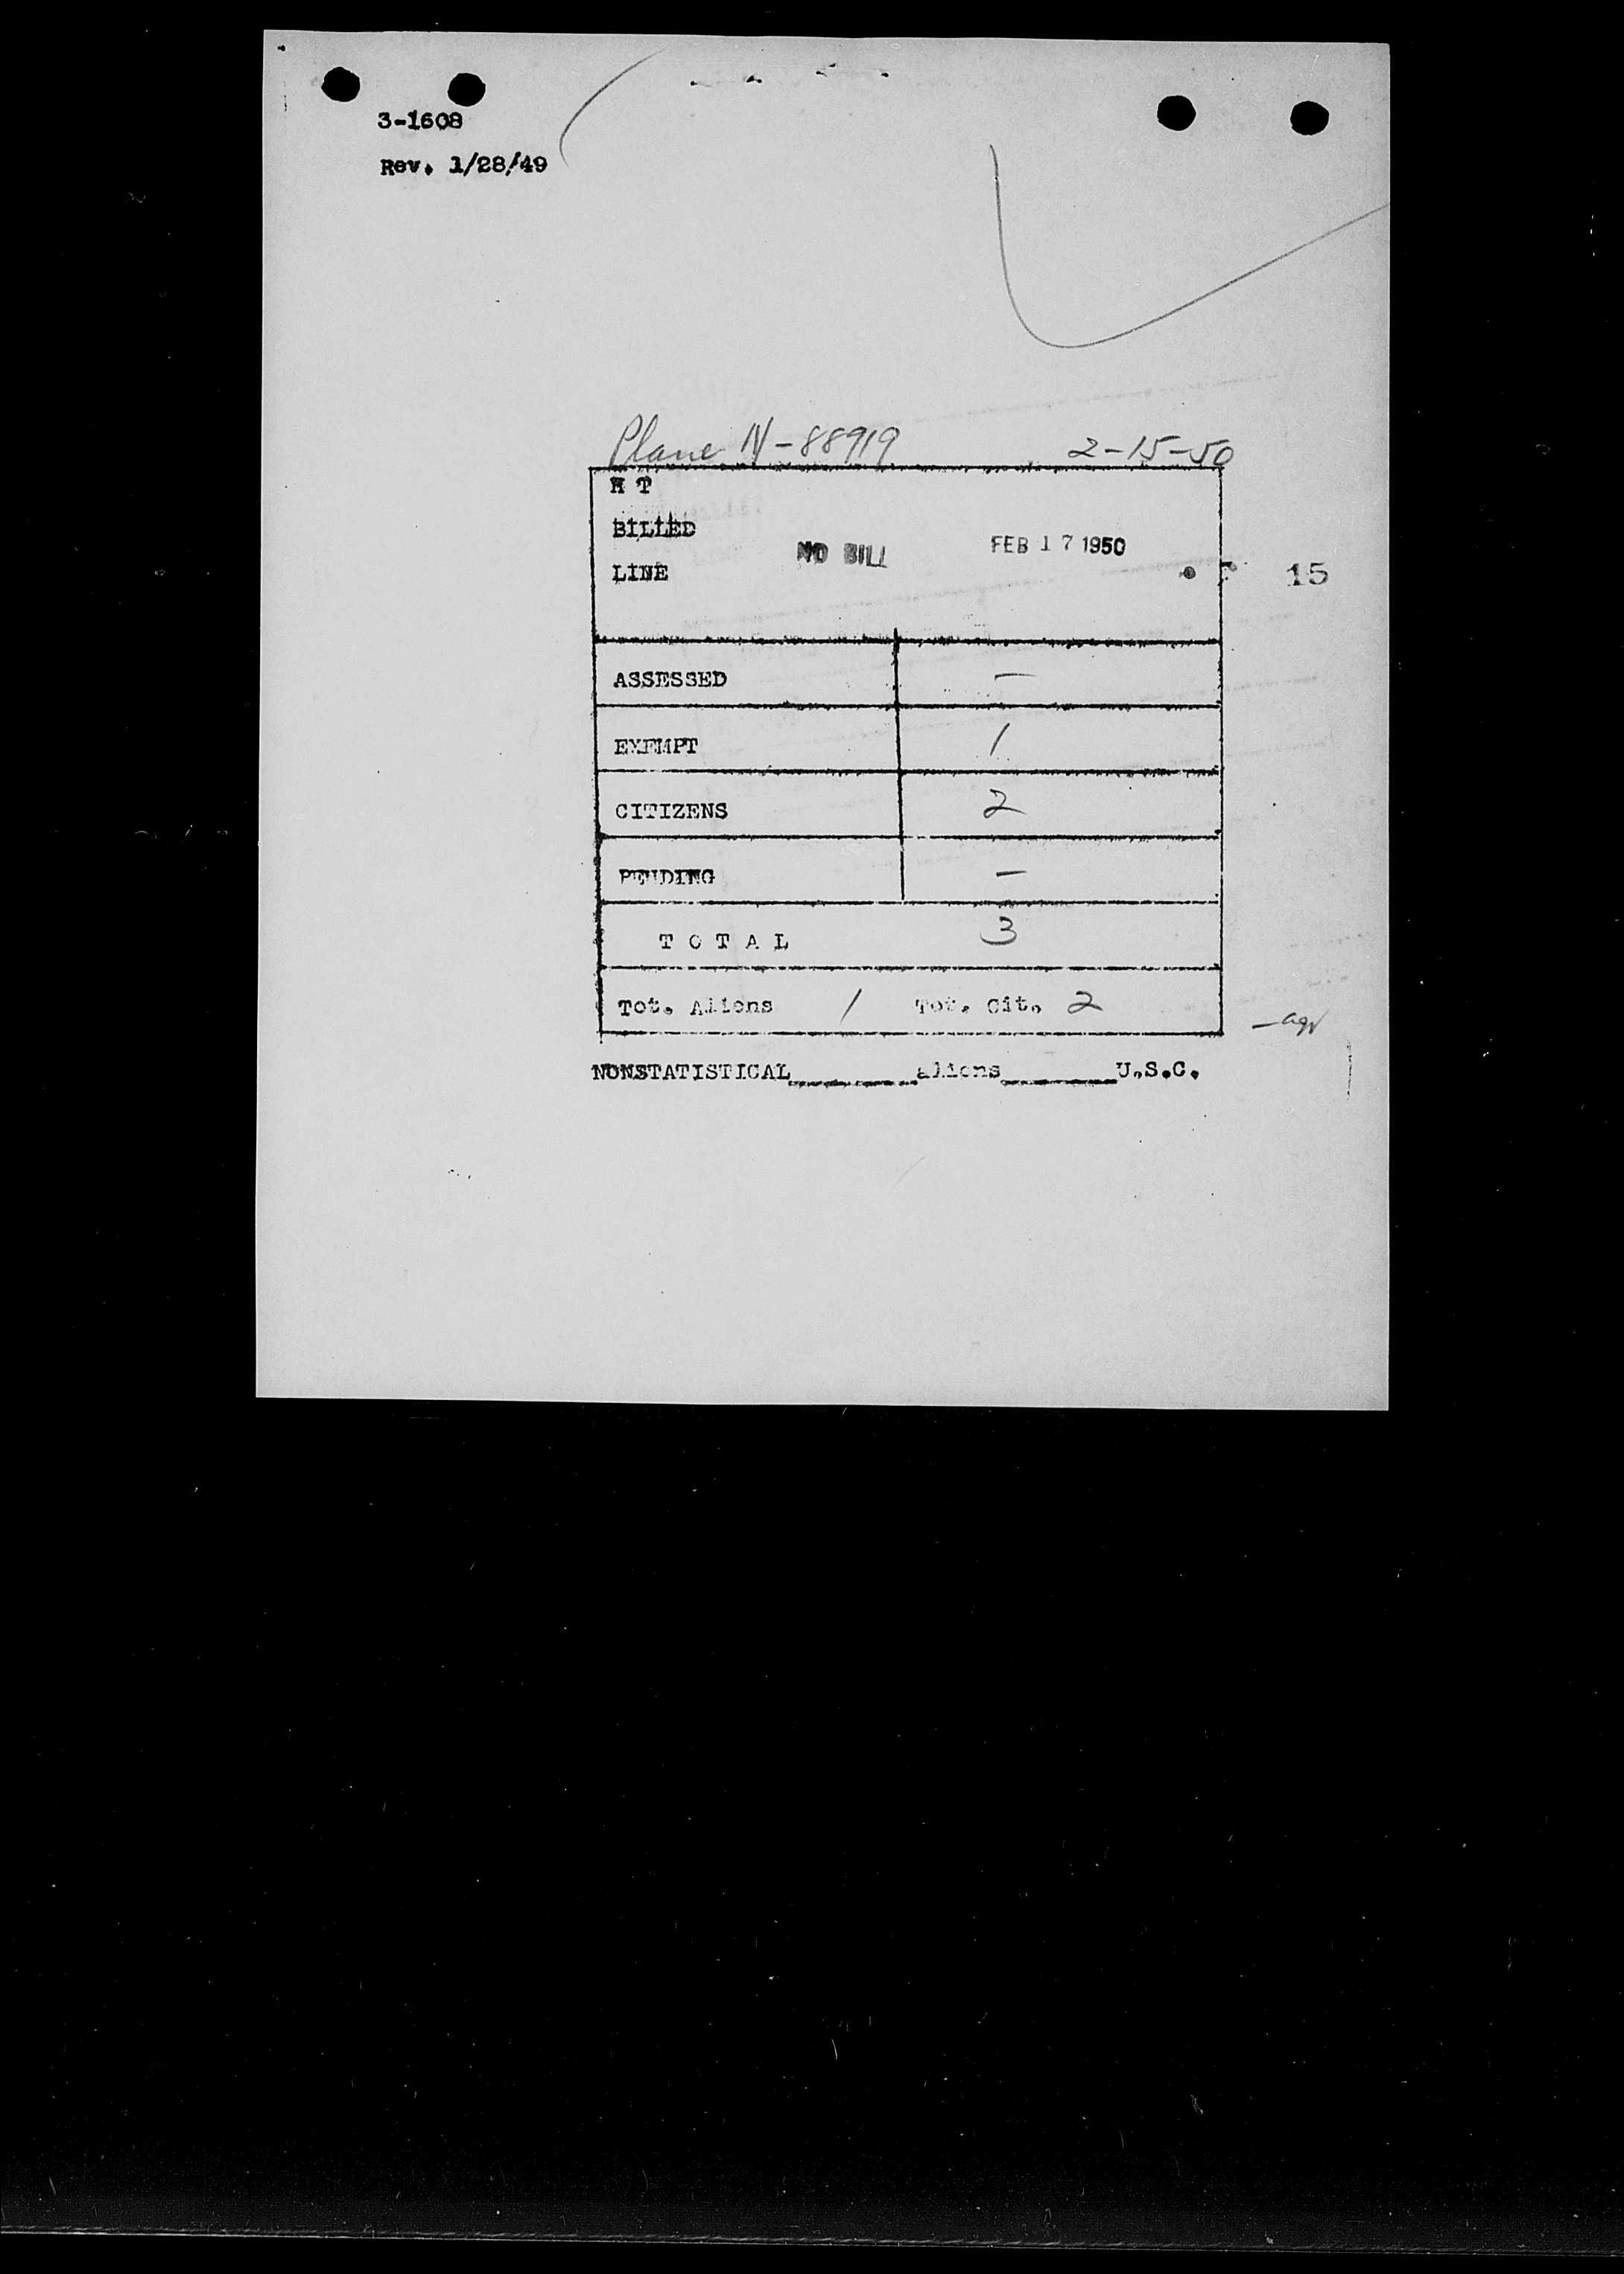 3-1608
Rev. 1/28/49
Plane N-88919 2-15-50
H T
BILLED
NO BILL FEB 17 1950
LINE
15
ASSESSED —
EXEMPT 1
CITIZENS 2
PENDING —
T O T A L 3
Tot. Aliens 1 Tot. Cit. 2
NONSTATISTICAL________aliens________U.S.C.